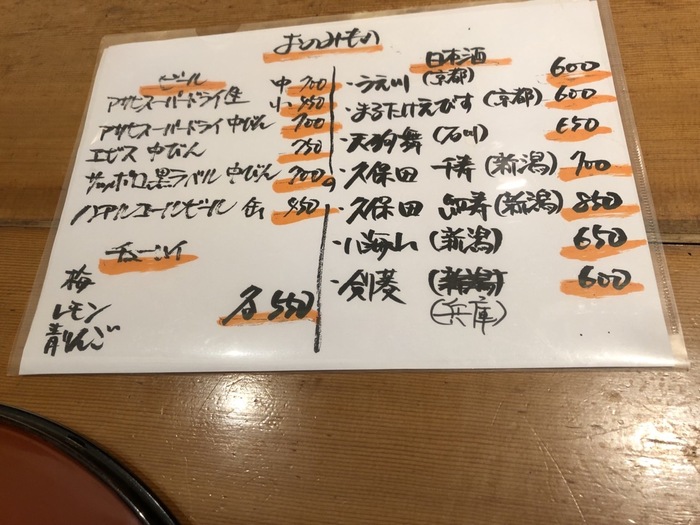 おのみもの
ビール
アサヒスーパードライ生 中 700
小 450
アサヒスーパードライ中びん 700
エビス 中びん 750
サッポロ黒ラベル 中びん 700
ノンアルコールビール 缶 450
チューハイ
梅
レモン
青りんご
各 550
日本酒
・うえ川 (京都) 600
・まるたけえびす (京都) 600
・天狗舞 (石川) 650
・久保田 千寿 (新潟) 700
・久保田 紅寿 (新潟) 850
・八海山 (新潟) 650
・剣菱 600
(兵庫)